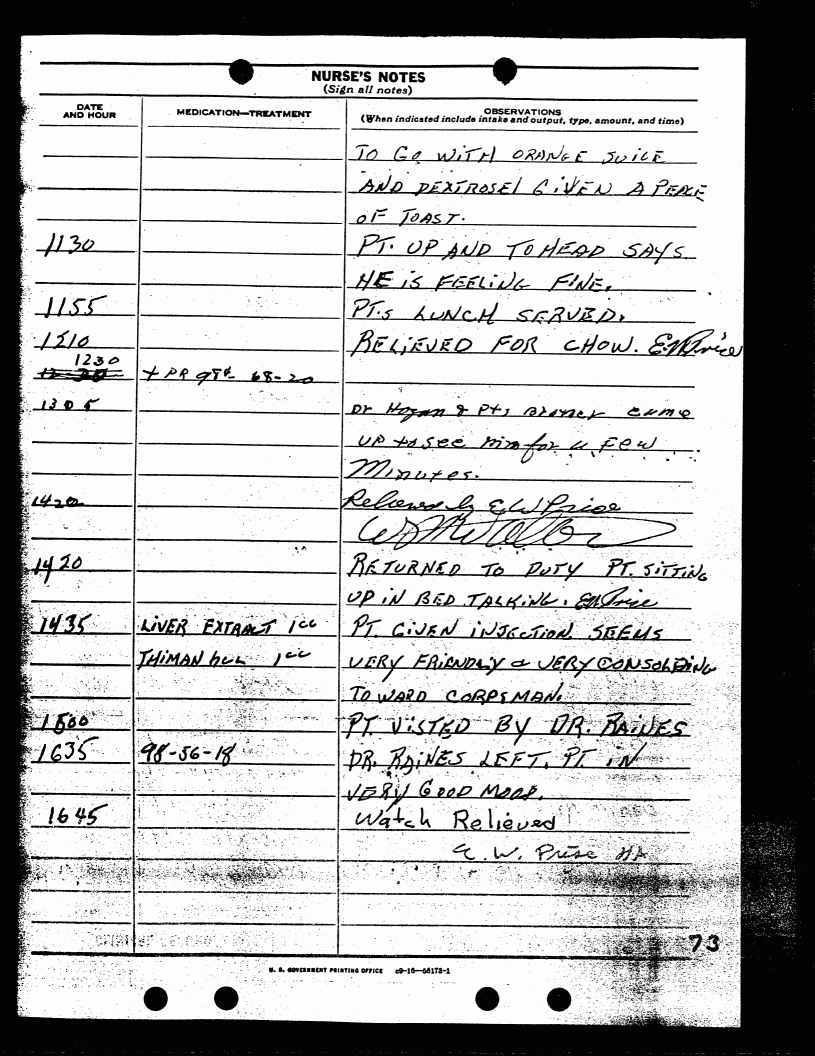 NURSE'S NOTES
(Sign all notes)
DATE AND HOUR
MEDICATION—TREATMENT
OBSERVATIONS
(When indicated include intake and output, type, amount, and time)
TO GO WITH ORANGE JUICE
AND DEXTROSE/ GIVEN A PEACE
OF TOAST.
1130 PT. UP AND TO HEAD SAYS
HE IS FEELING FINE.
1155 PT.s LUNCH SERVED.
1210 RELIEVED FOR CHOW. E.W. Price
1230
T PR 98⁴- 68-20
1305 Dr Hogan & Pts Brother came
up to see him for a few
Minutes.
1420 Relieved by E.W Price
1420 RETURNED TO DUTY PT. SITTING
UP IN BED TALKING. E.W. Price
1435 LIVER EXTRACT 1cc PT. GIVEN INJECTION. SEEMS
1cc VERY FRIENDLY & VERY
TOWARD CORPSMAN.
1500 PT. VISTED BY DR. RAINES
1635 98-56-18 DR. RAINES LEFT. PT. IN
VERY GOOD MOOD.
1645 Watch Relieved
E. W. Price HA
73
U. S. GOVERNMENT PRINTING OFFICE c9-16—56173-1